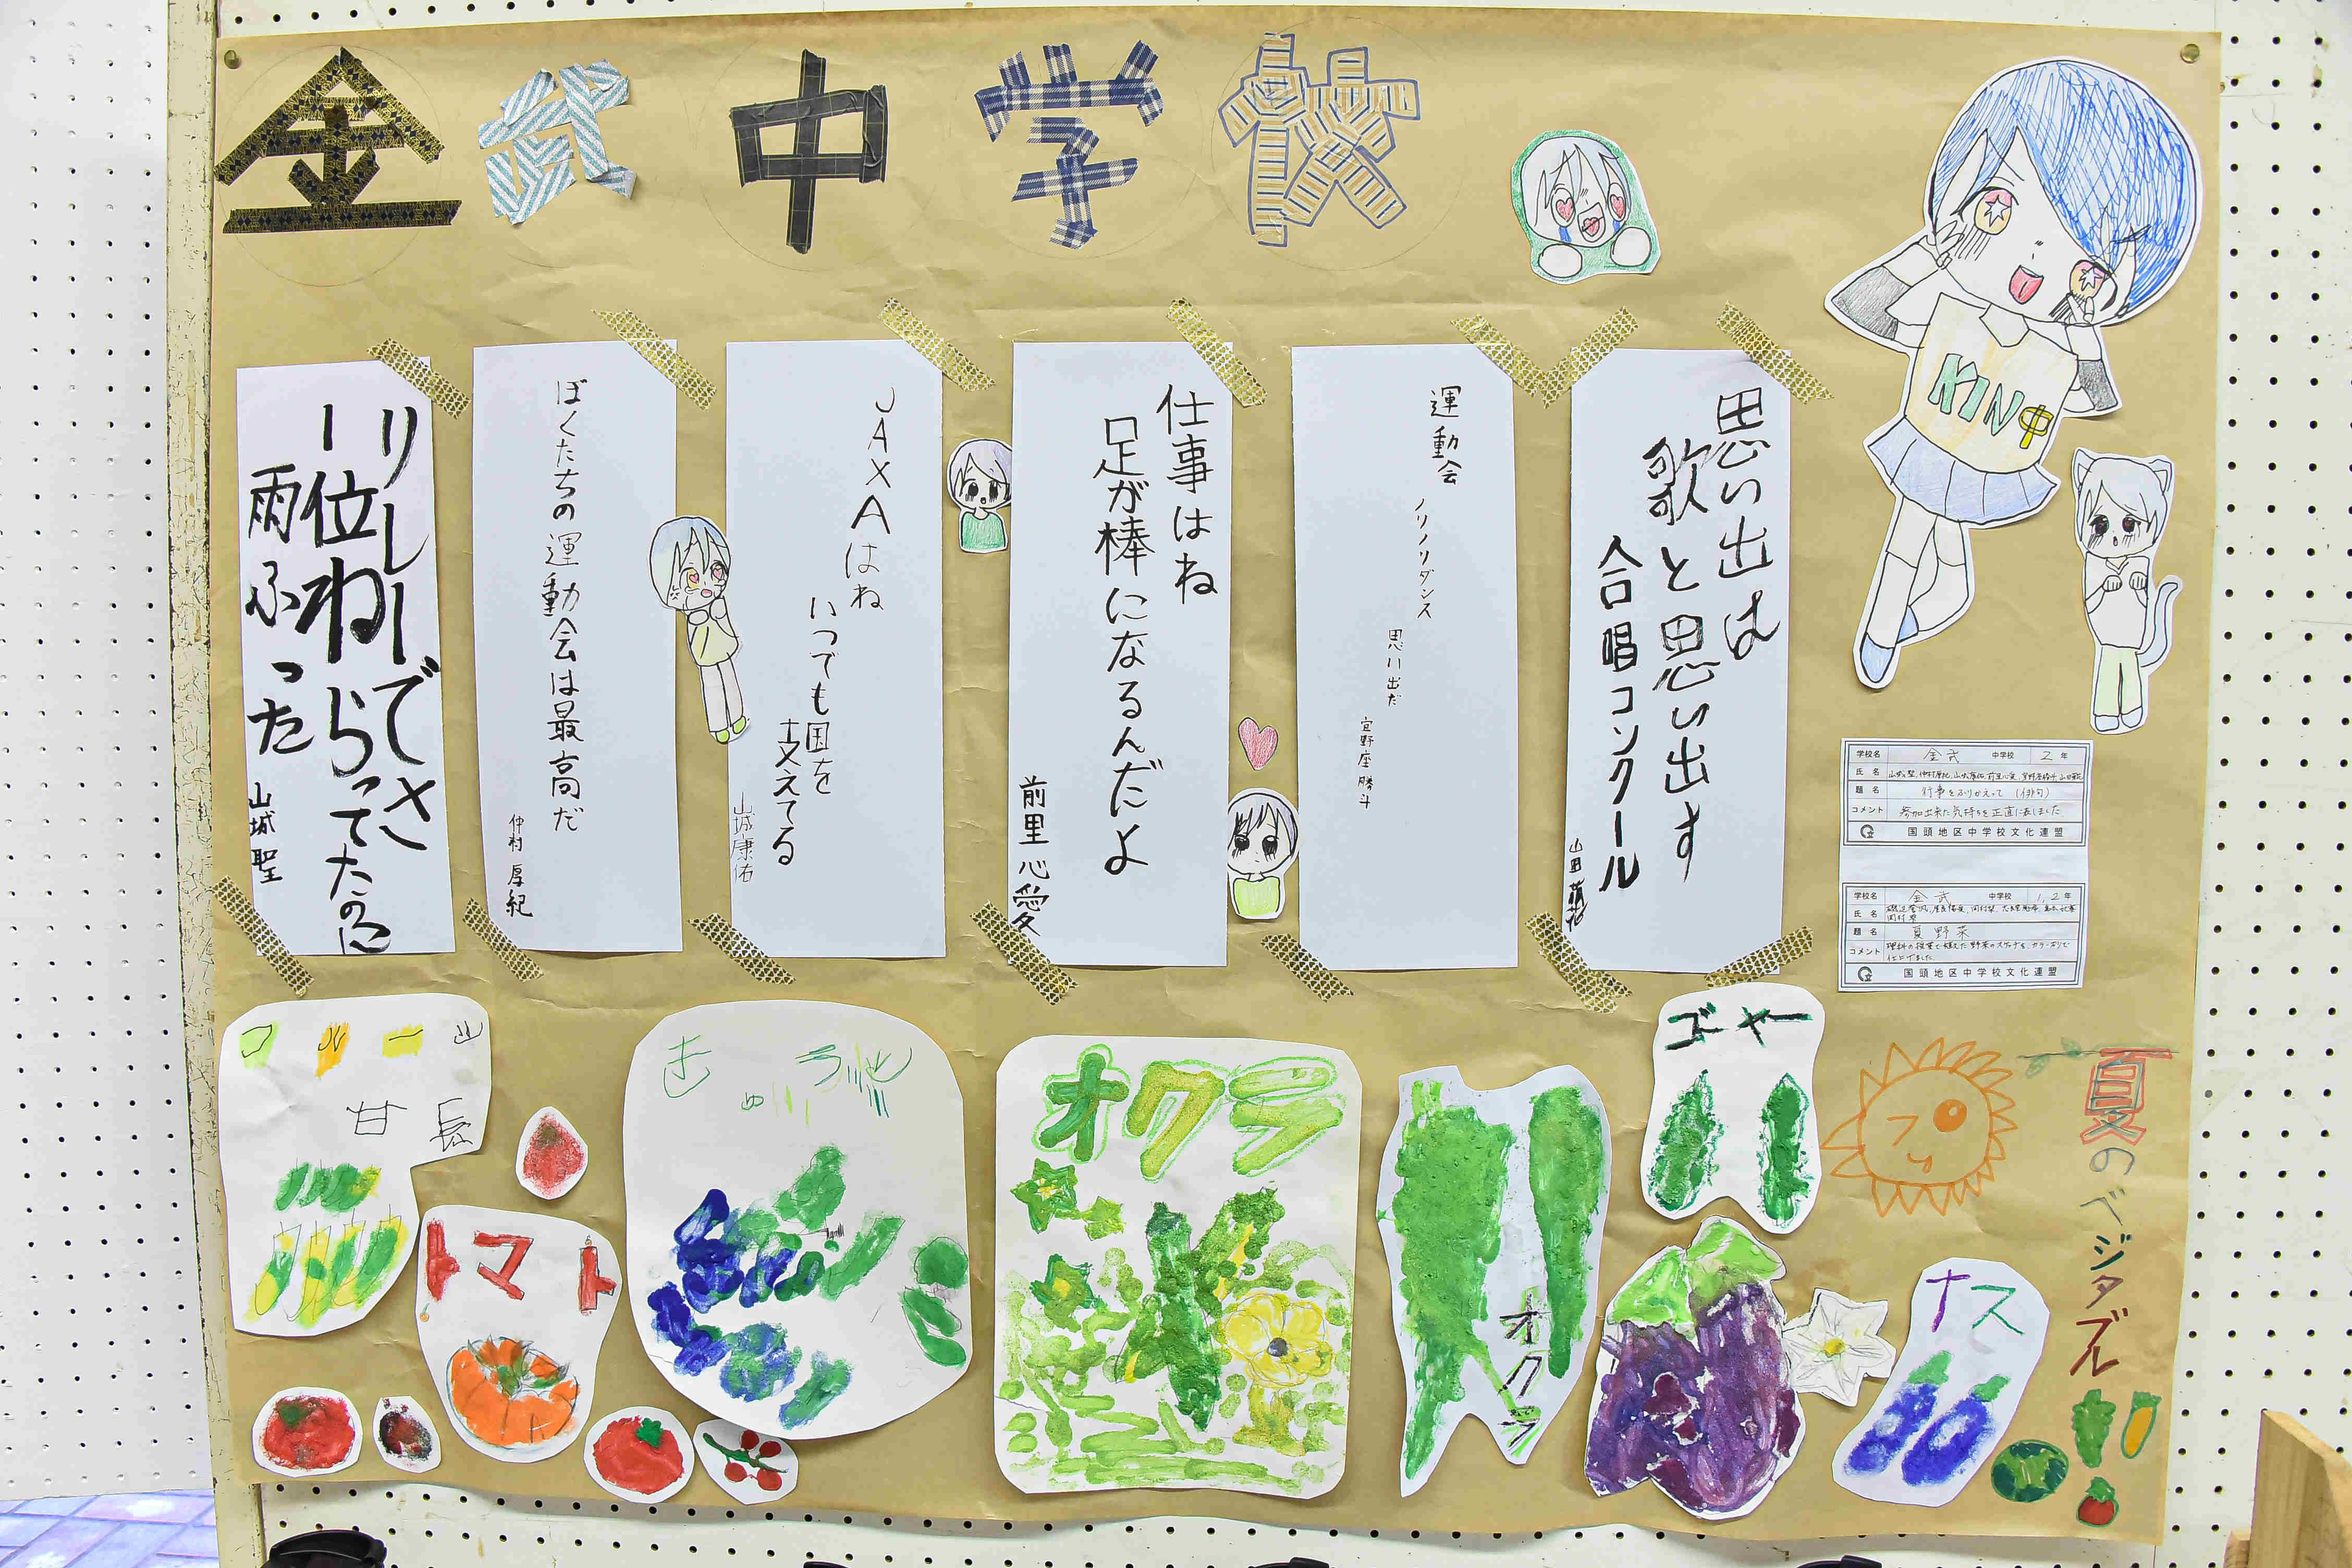 金武中学校
KIN中
思い出は
歌と思い出す
合唱コンクール
山田
運動会
ノリノリダンス
思い出だ
宜野座 勝斗
仕事はね
足が棒になるんだよ
前里 心愛
JAXAはね
いつでも国を
支えてる
山城康佑
ぼくたちの運動会は最高だ
仲村 厚紀
リレーでさ
一位ねらってたのに
雨ふった
山城 聖
学校名 金武 中学校 2年
氏名
題名 行事をふりかえって (俳句)
コメント 参加出来た気持ちを正直に表しました
国頭地区中学校文化連盟
学校名 金武 中学校 1,2年
氏名
題名 夏野菜
コメント 理科の授業で植えた野菜のスケッチを、カラーのりで
仕上げました
国頭地区中学校文化連盟
夏のベジタブル
ゴーヤー
ナス
オクラ
オクラ
きゅうり
トマト
甘長